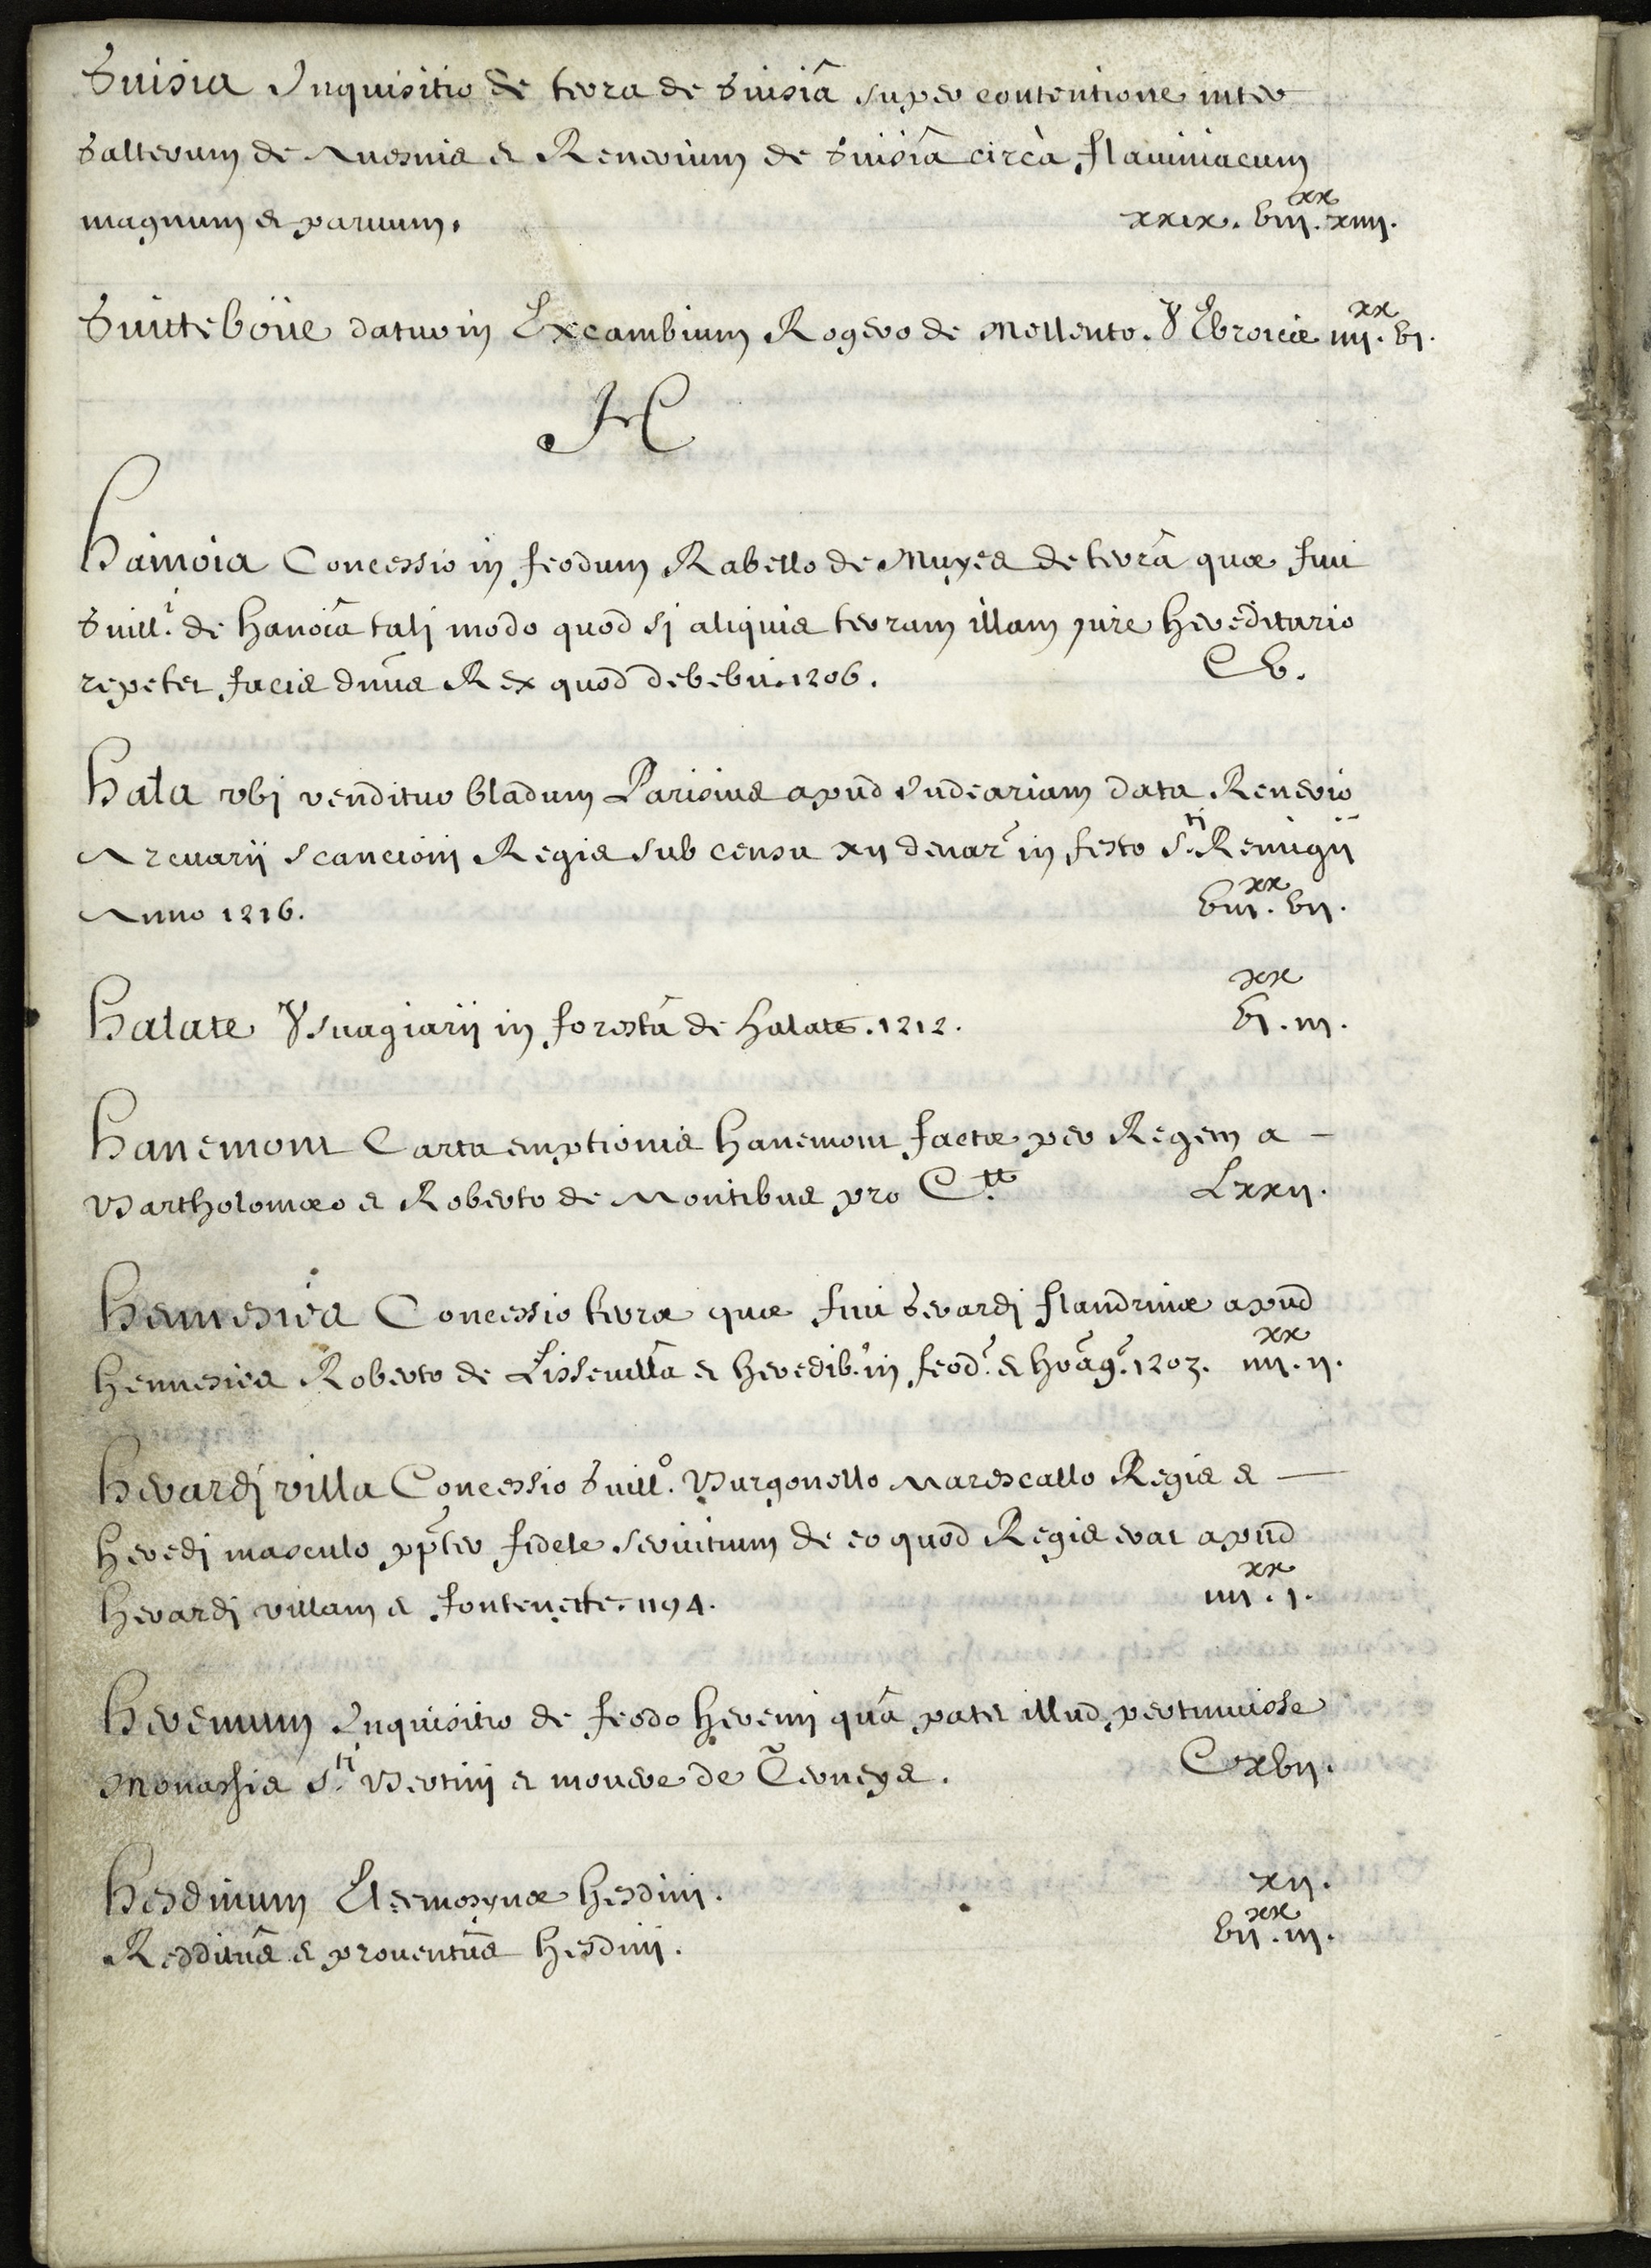 Guisia Inquisitio de terra de Guisiâ super contentione inter
Galterum de Auesnis et Renerium de Guisiâ circà flauiniacum
magnum et paruum. xxix. viii^xx. xiiii.
Guitteboüe datur in Excambium Rogero de Mellento. V Ebroicæ iiii^xx. vi.
H
Hainoia Concessio in feodum Rabello de Muyes de terrâ quæ fuit
Guill.^i de Hanoiâ tali modo quod si aliquis terram illam jure hereditario
repetet faciet dnũs Rex quod debebit. 1206. Cv.
Hala vbi venditur bladum Parisius apud Iudeariam data Renerio
Arcuarii scancioni Regis sub censu xii denar~ in festo S.^ti Remigii
Anno 1216. viii^xx. vii.
Halate Vsuagiarii in forestâ de halate. 1212. vi^xx. iii.
Hanemont Carta emptionis hanemont factæ per Regem a –
Bartholomæo et Roberto de Montibus pro C^tt. Lxxii.
Hennesies Concessio terræ quæ fuit Gerardi flandrinæ apud
hennesies Roberto de Lisseuillâ et heredib. in feod~. et hoãg~. 1203. iiii^xx. ii.
Herardi villa Concessio Guill^o. Burgonello Marescallo Regis et —
heredi masculo ppter fidele seruitium de eo quod Regis erat apud
herardi villam et fontenette. 1194. iiii^xx. i.
Herenium Inquisitio de feodo herenii quâ patet illud pertinuisse
Monast~is S.^ti Bertini et mouere de Terneys. Cxvii.
Hesdinum Eleemosynæ hesdini. xii.
Redditus et prouentus hesdini. vii^xx. iii.